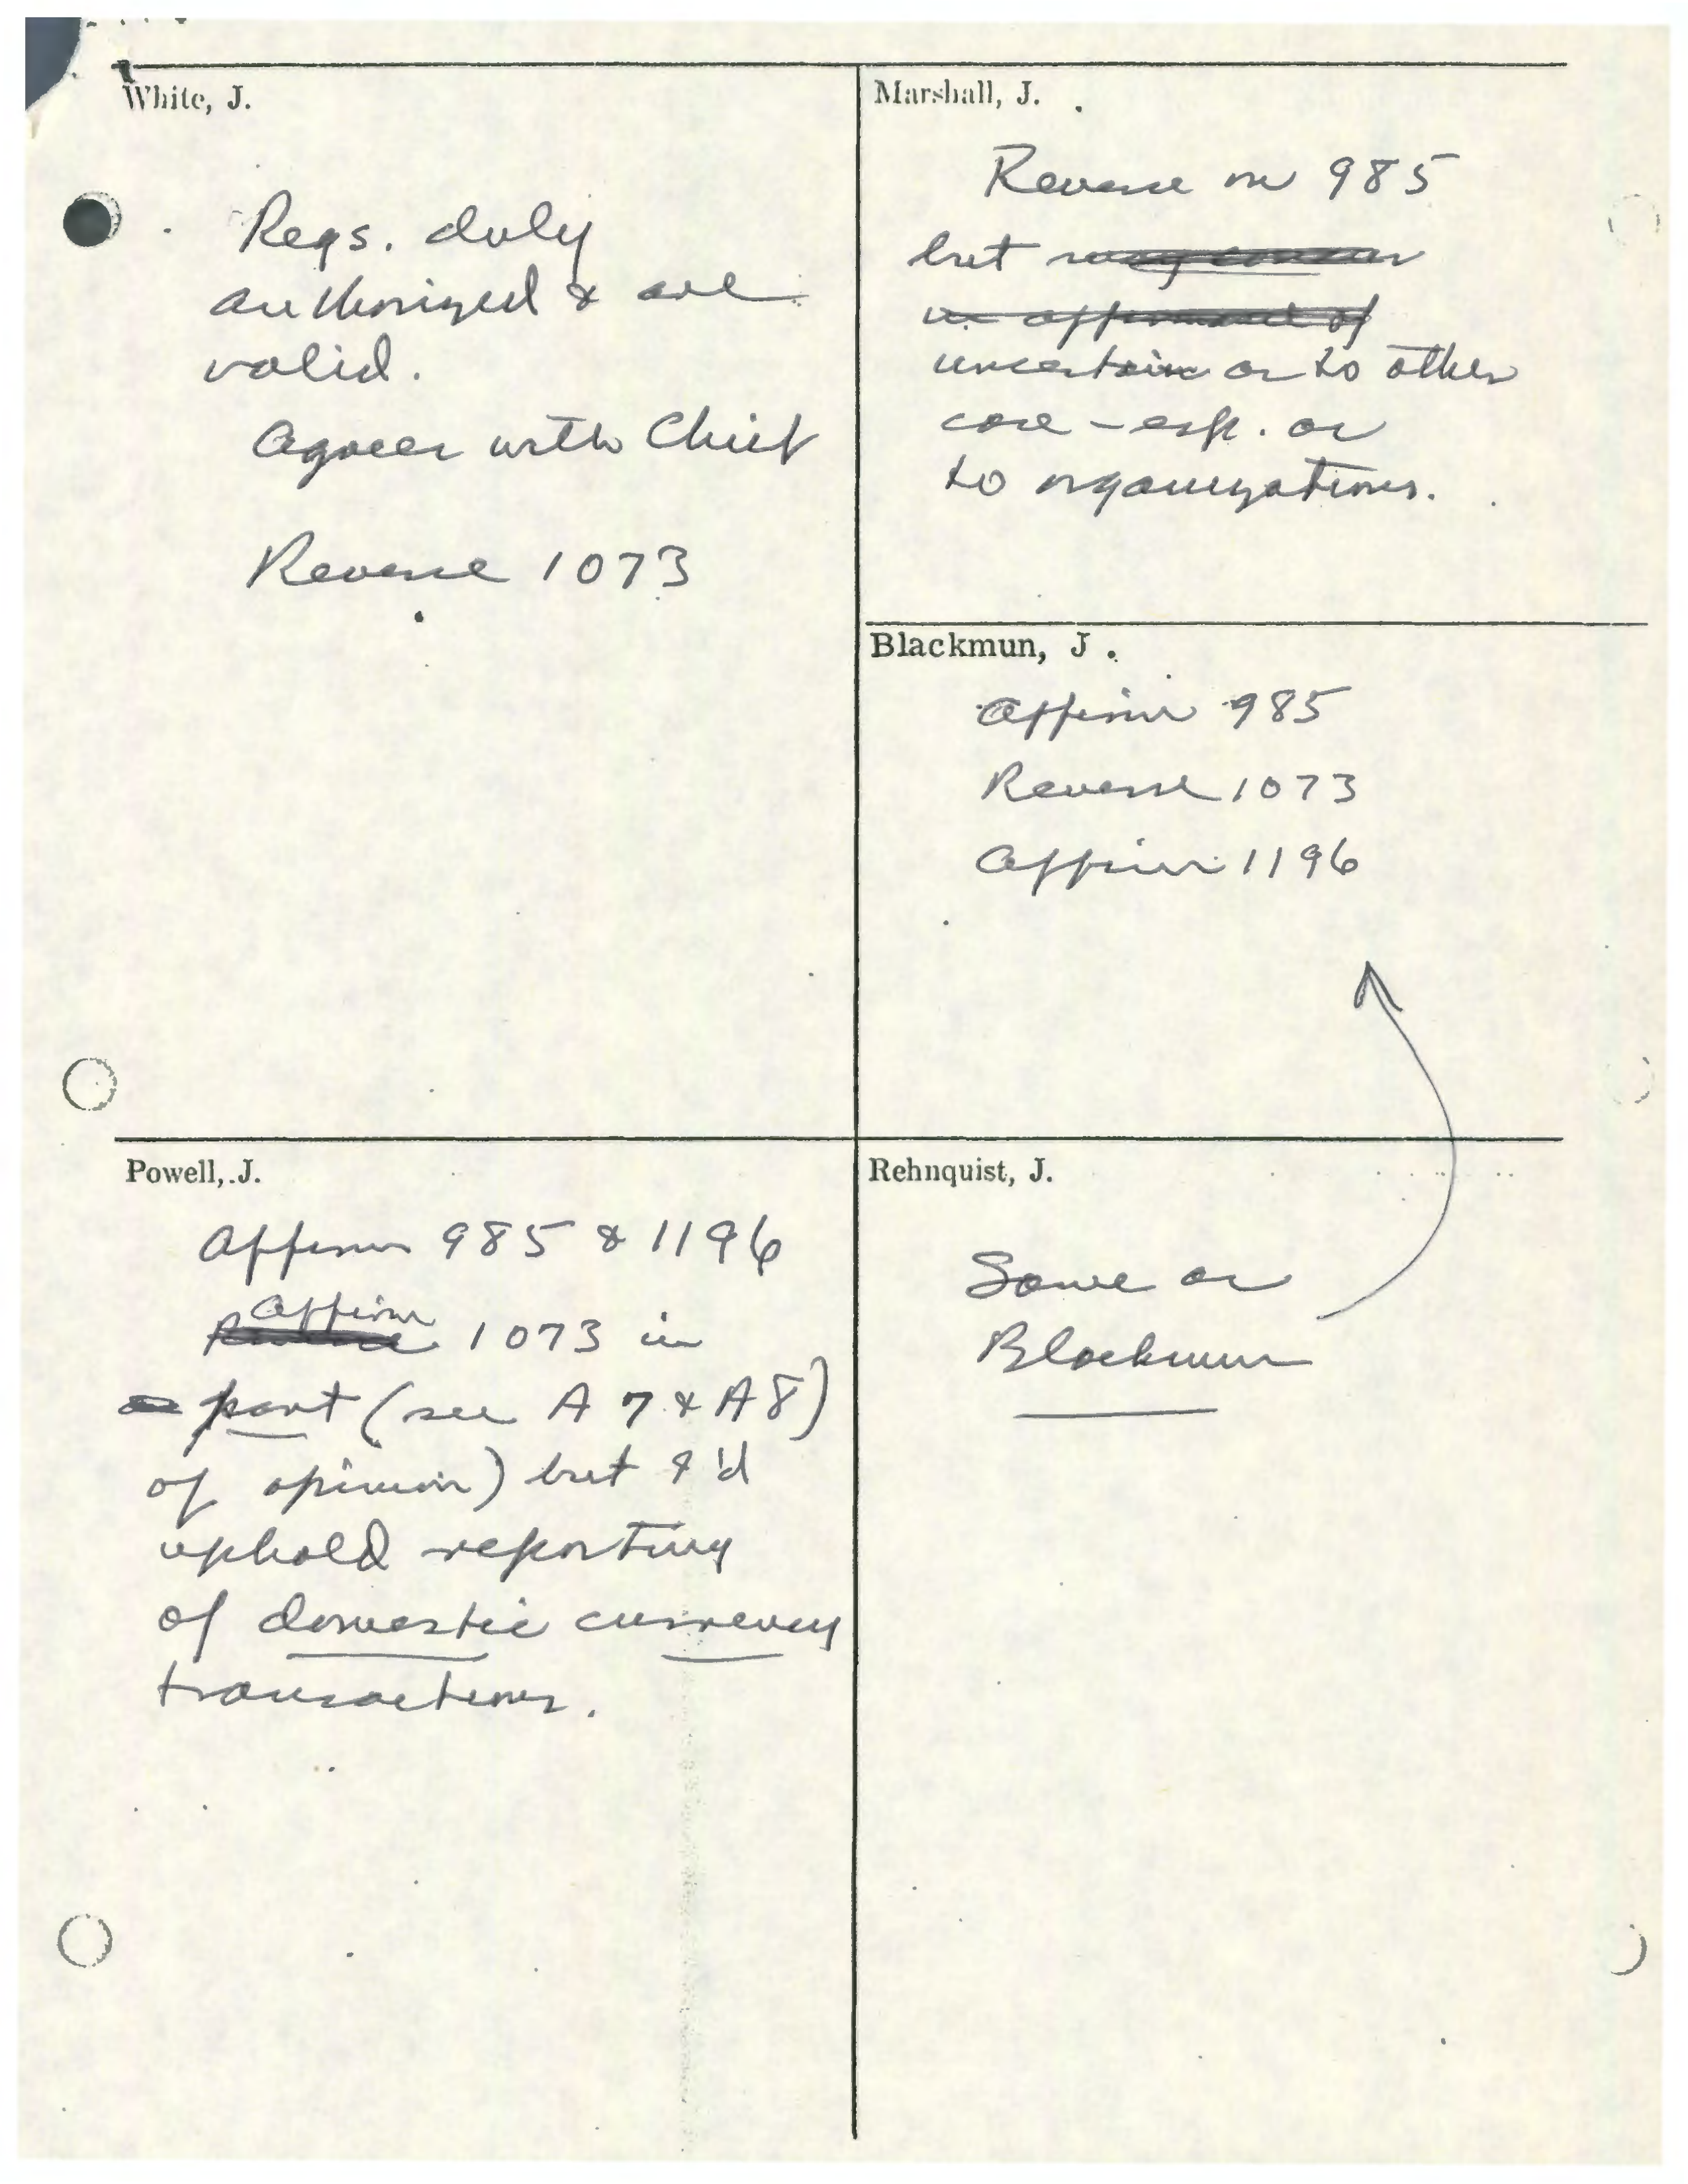 White, J.
Regs. duly
authorized & are
valid.
Agrees with Chief
Reverse 1073
Marshall, J.
Reverse on 985
but may concur
in affirmance of
uncertain as to other
case - esp. as
to organizations.
Blackmun, J.
Affirm 985
Reverse 1073
Affirm 1196
Powell, J.
Affirm 985 & 1196
Affirm
Reverse 1073 in
part (see A 7 & A 8)
of opinion) but I'd
uphold reporting
of domestic currency
transactions.
Rehnquist, J.
Same as
Blackmun